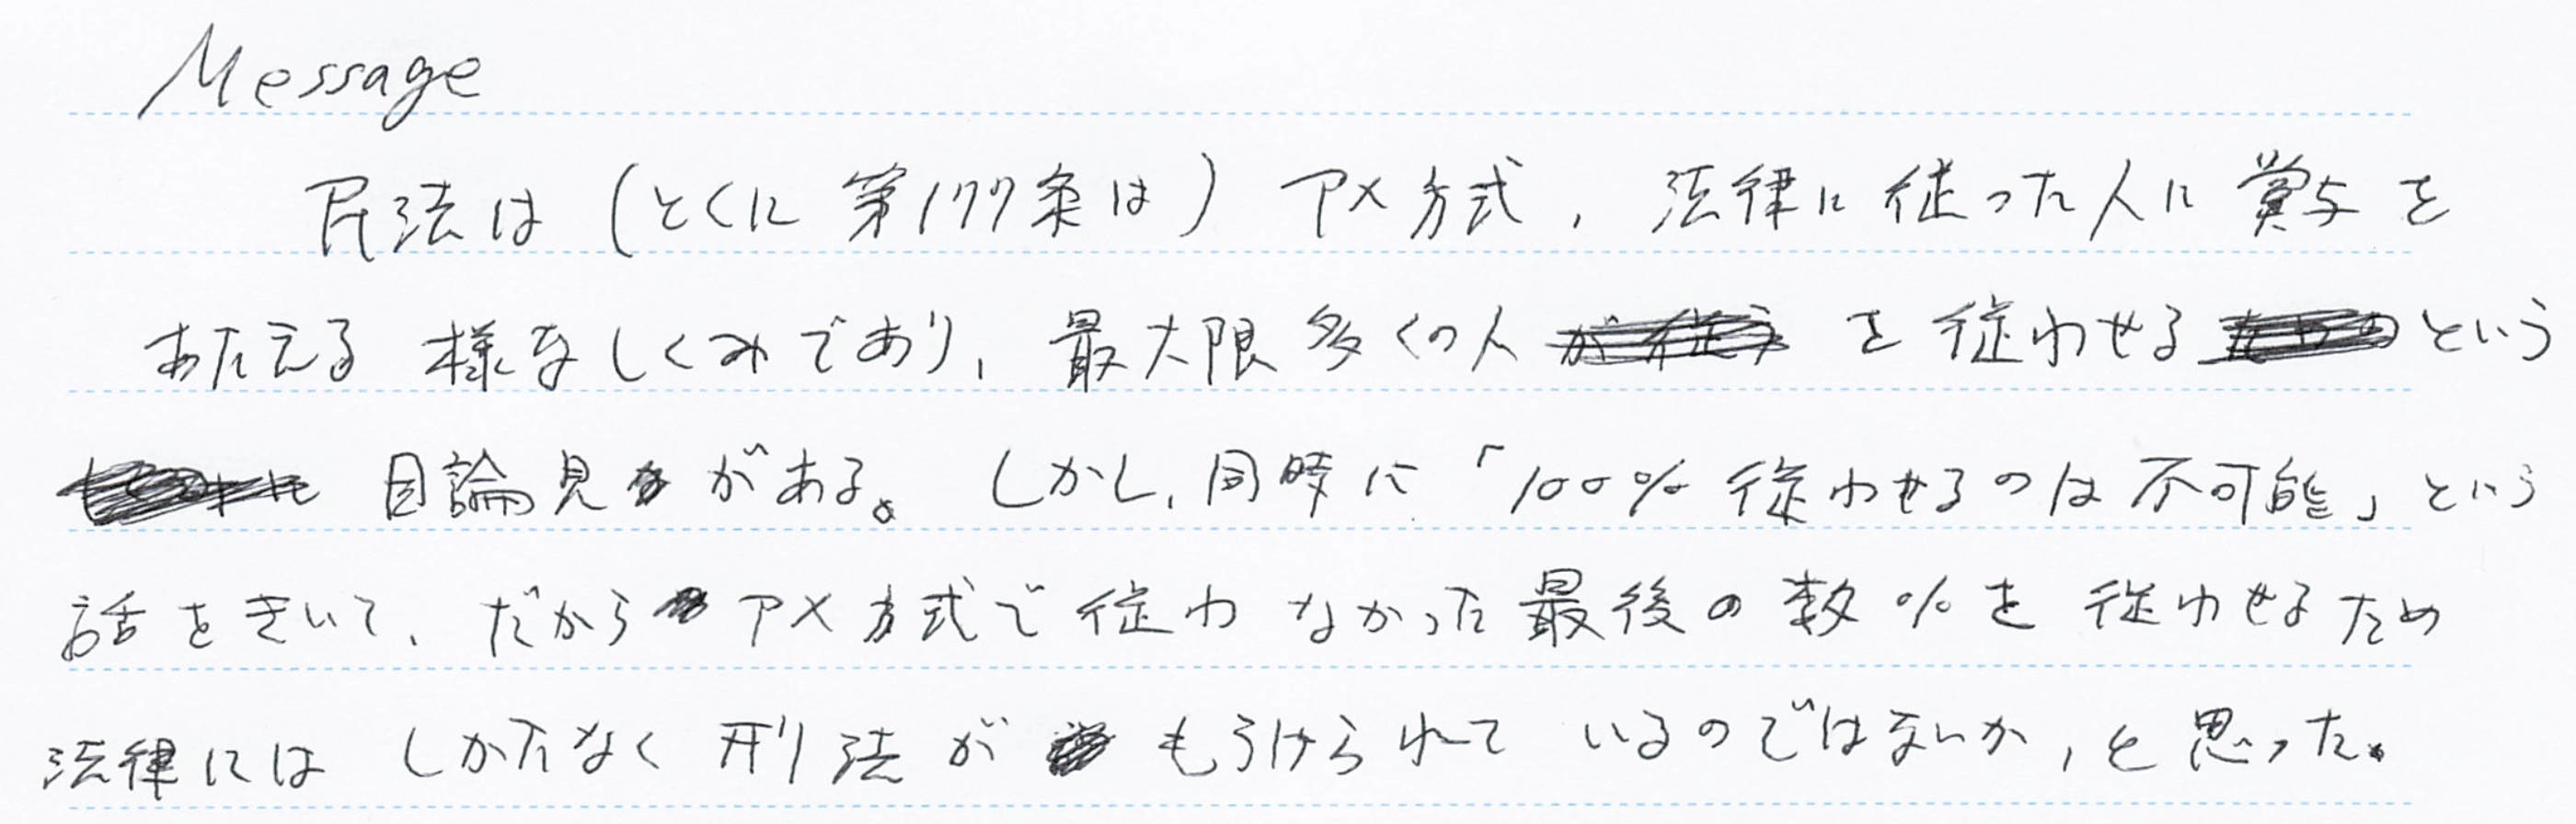 Message
民法は(とくに第177条は)アメ方式、法律に従った人に賞与を
あたえる様なしくみであり、最大限多くの人を従わせるという
目論見がある。しかし、同時に「100%従わせるのは不可能」という
話をきいて、だからアメ方式で従わなかった最後の数%を従わせるため
法律にはしかたなく刑法がもうけられているのではないか、と思った。